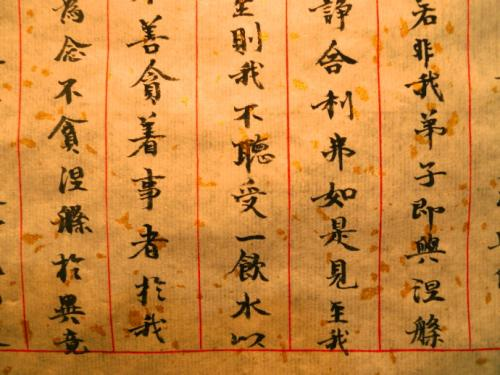 若非我弟子即與涅槃
諍舍利弗如是見至我
則我不聽受一飲水以
善貪着事者於我
為念不貪涅槃於畢竟